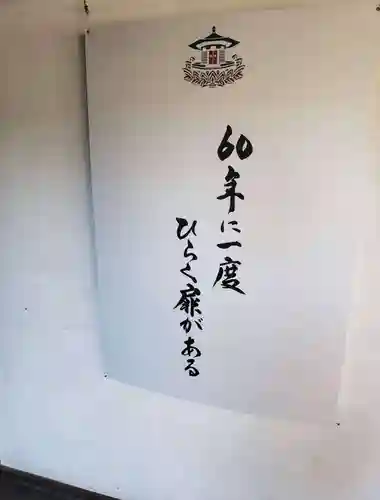 60年に一度
ひらく扉がある